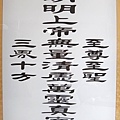 至尊至聖
明明上帝無量清虛萬靈真宰
三界十方